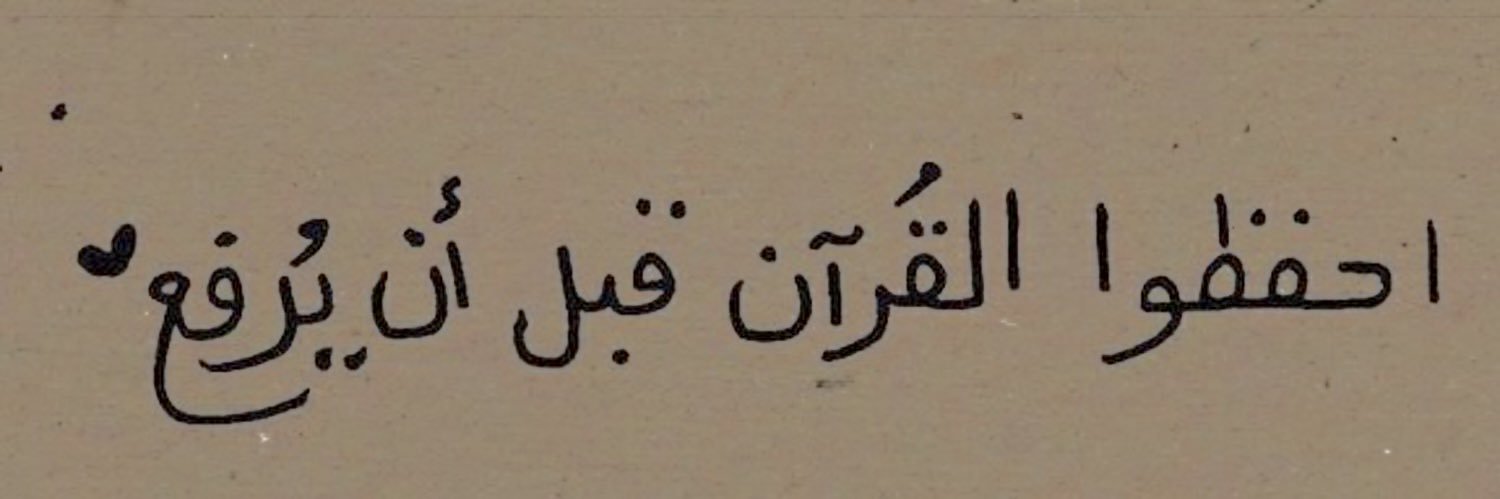 احفظوا القُرآن قبل أن يُرفع